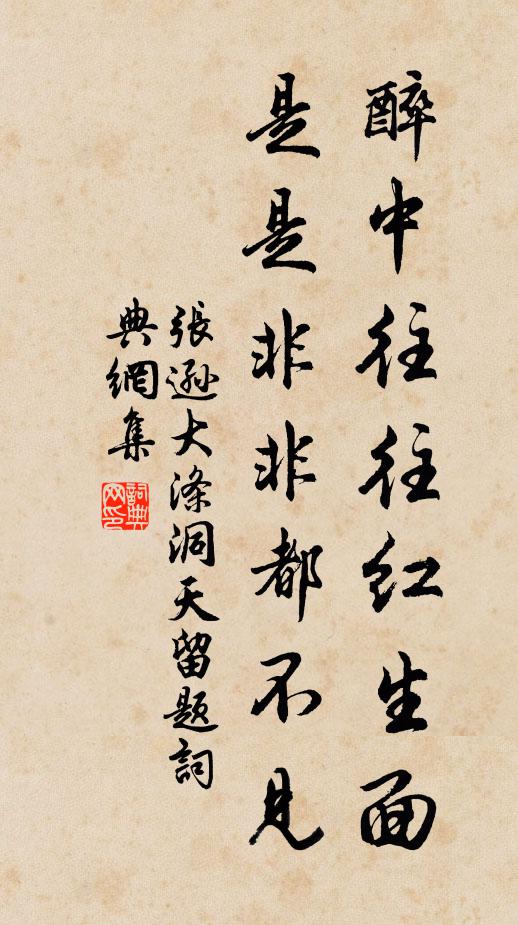 醉中往往红生面
是是非非都不見
張遜大滌洞天留題詞
典網集
詞典网印